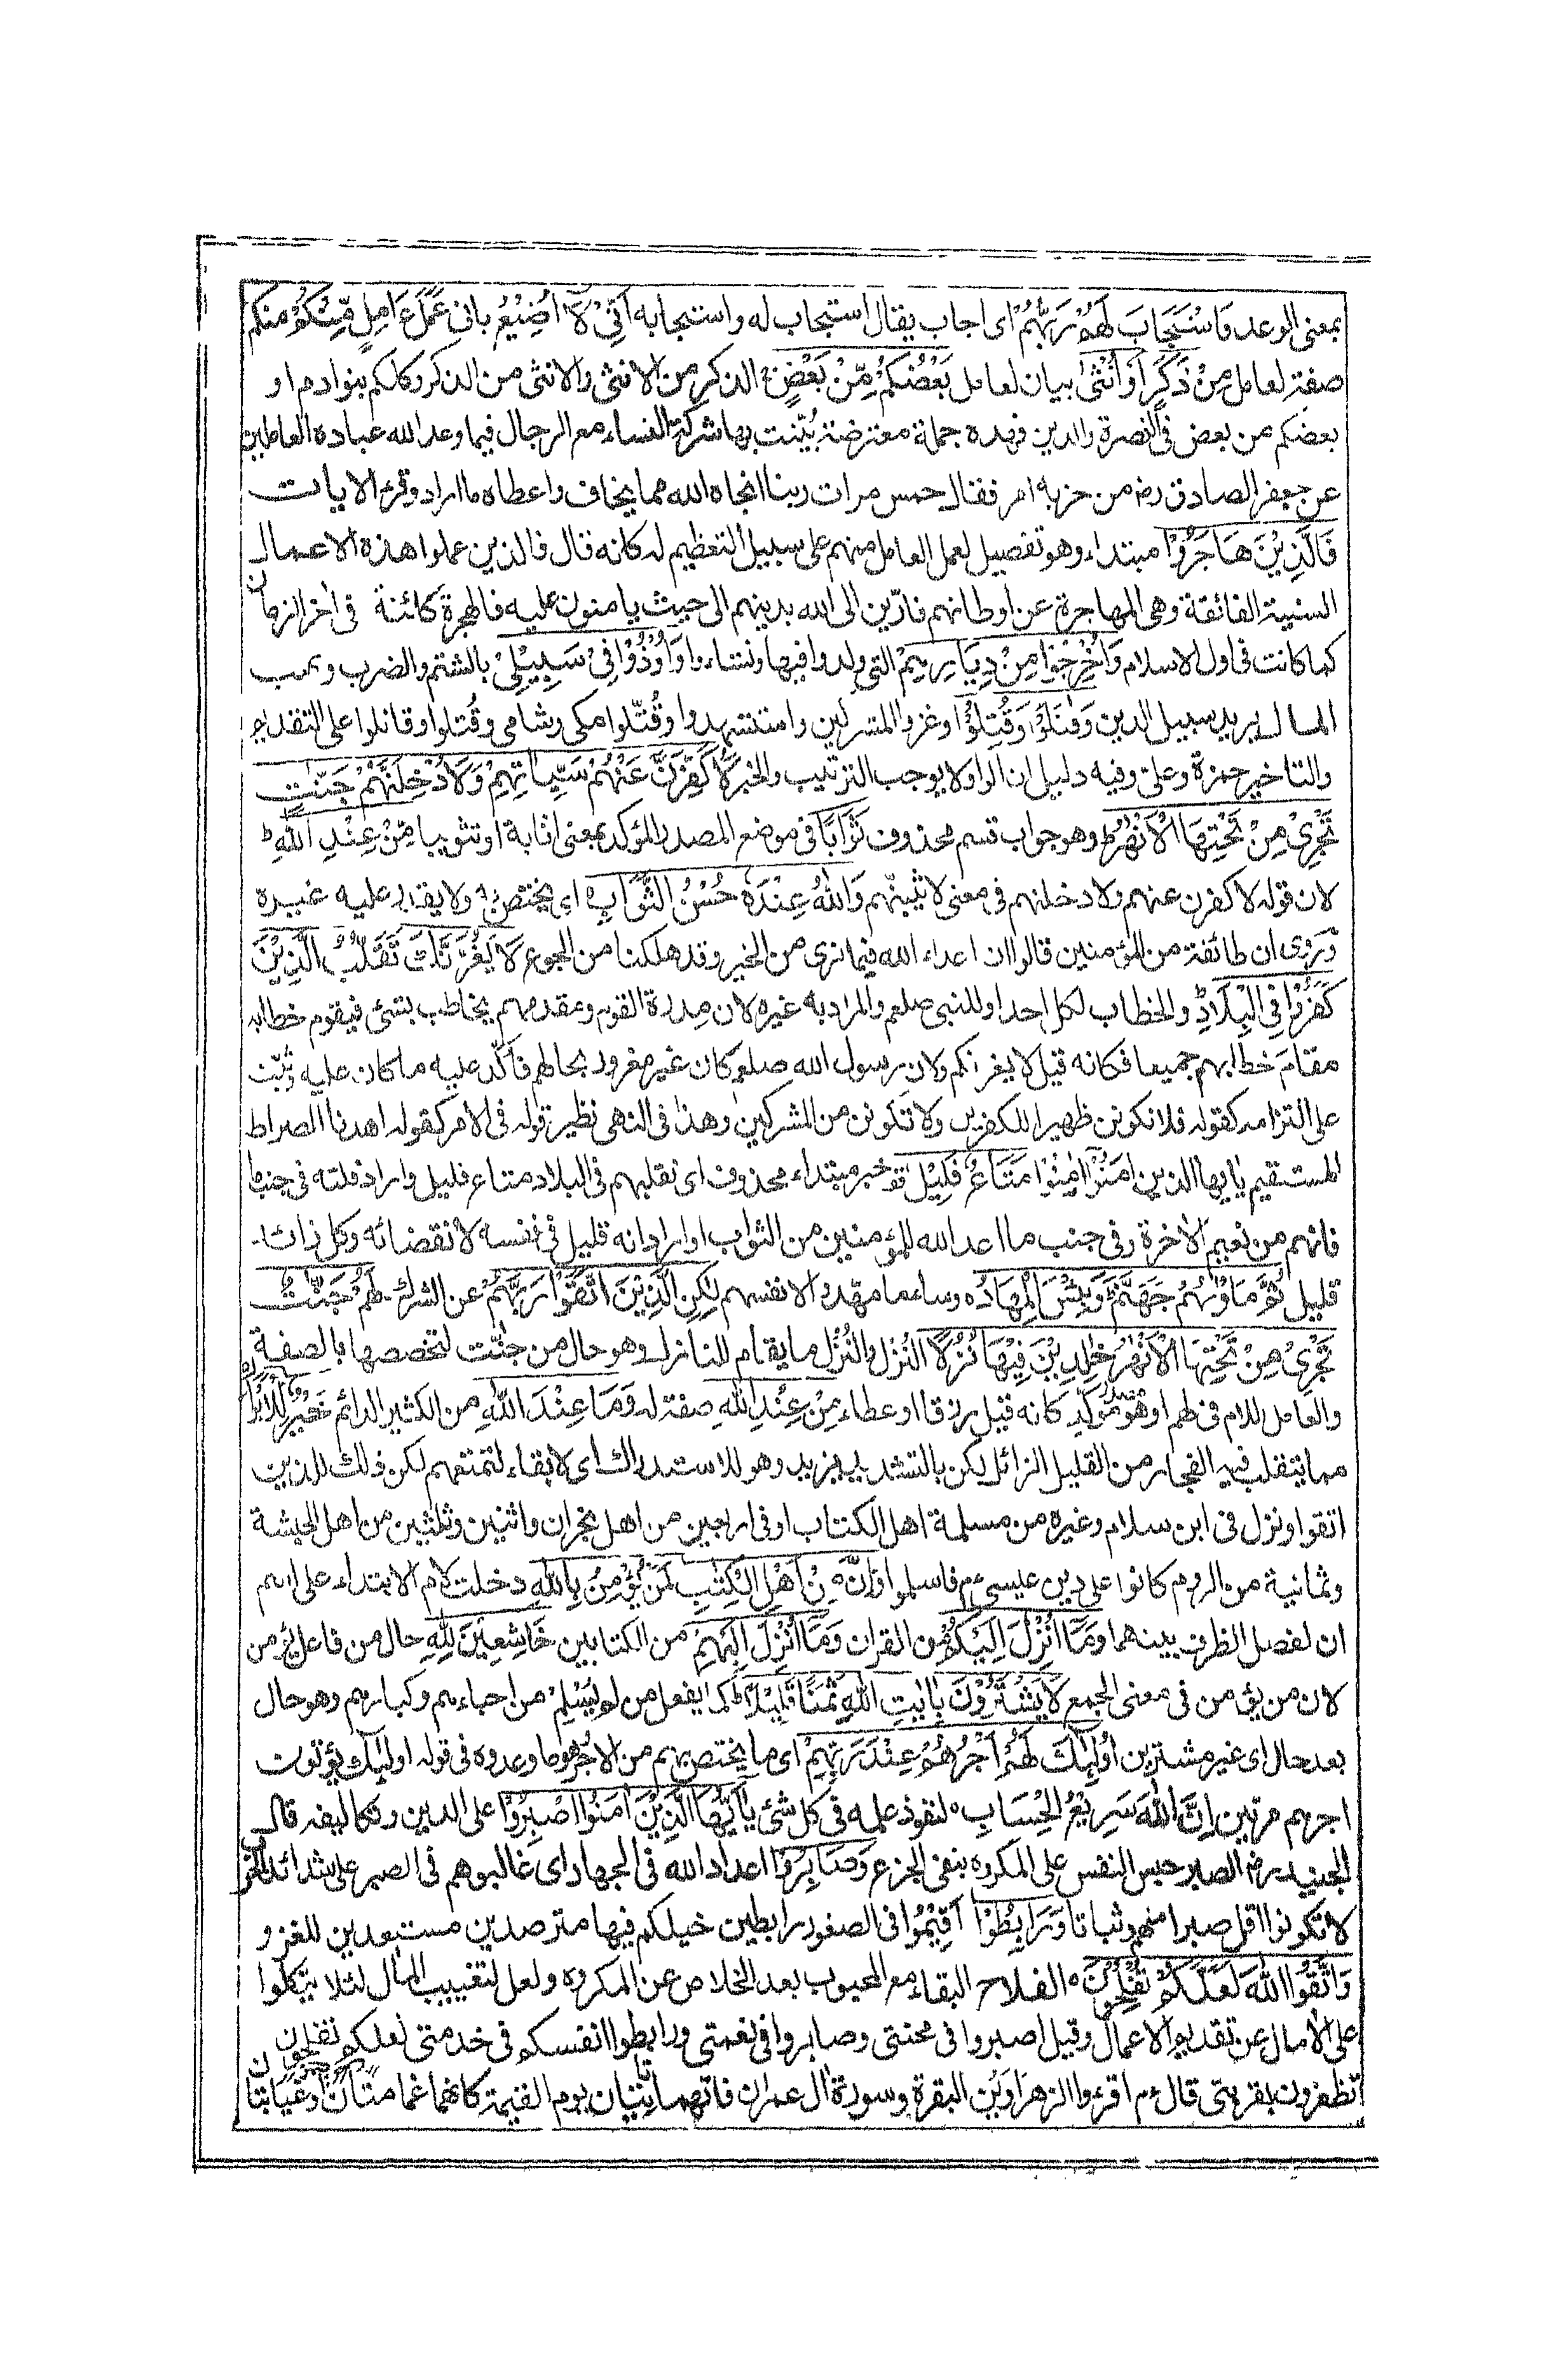 بمعنى الوعد فَاسْتَجَابَ لَهُمْ رَبُّهُمْ اى اجاب يقال استجاب له واستجابه اَنِّىْ لَآ اُضِيْعُ بانى عَمَلَ عَامِلٍ مِّنْكُمْ منكم
صفة لعامل مِنْ ذَكَرٍ اَوْ اُنْثٰى بيان لعامل بَعْضُكُمْ مِّنْ بَعْضٍ الذكر من الانثى والانثى من الذكر وكلكم بنو ادم او
بعضكم من بعض فى النصرة والدين فهذه جملة معترضة بُيّنت بها شركة النساء مع الرجال فيما وعد الله عباده العاملين
عن جعفر الصادق رض من حزبه امر فقال خمس مرات ربنا انجاه الله مما يخاف واعطاه ما اراد وقرء الايات
فَالَّذِيْنَ هَاجَرُوْا مبتداء وهو تفصيل لعمل العامل منهم على سبيل التعظيم له كانه قال فالذين عملوا هذه الاعمال
السنية الفائقة وهى المهاجرة عن اوطانهم فارّين الى الله بدينهم الى حيث يامنون عليه فالهجرة كائنة فى اخر الزمان
كما كانت فى اول الاسلام وَاُخْرِجُوْا مِنْ دِيَارِهِمْ التى ولدوا فيها ونشاءوا وَاُوْذُوْا فِىْ سَبِيْلِىْ بالشتم والضرب ونهب
المال يريد سبيل الدين وَقٰتَلُوْا وَقُتِلُوْا وغزوا المشركين واستشهدوا وقُتّلوا مكى وشامى وقُتلوا وقاتلوا على التقديم
والتاخير حمزة وعلىّ وفيه دليل ان الواو لا يوجب الترتيب والخبر لَاُكَفِّرَنَّ عَنْهُمْ سَيِّاٰتِهِمْ وَلَاُدْخِلَنَّهُمْ جَنّٰتٍ
تَجْرِىْ مِنْ تَحْتِهَا الْاَنْهٰرُ وهو جواب قسم محذوف ثَوَابًا فى موضع المصدر المؤكد بمعنى اثابة او تثويبا مِّنْ عِنْدِ اللّٰهِ ط
لان قوله لاكفرن عنهم ولادخلنهم فى معنى لاثيبنّهم وَاللّٰهُ عِنْدَهٗ حُسْنُ الثَّوَابِ اى يختص به ولا يقدر عليه غيره
وروى ان طائفة من المؤمنين قالوا ان اعداء الله فيما نرى من الخير وقد هلكنا من الجوع لَا يَغُرَّنَّكَ تَقَلُّبُ الَّذِيْنَ
كَفَرُوْا فِى الْبِلَادِ والخطاب لكل احد او للنبى صلعم والمراد به غيره لان مدرة القوم ومقدمهم يخاطب بشئ فيقوم خطابه
مقامَ خطابهم جميعا فكانه قيل لا يغرنكم ولان رسول الله صلعم كان غير مغرور بحالهم فاُكّد عليه ما كان عليه وثُبّت
على التزامه كقوله فلا تكونن ظهيرا للكفرين ولا تكونن من المشركين وهذا فى النهى نظير قوله فى الامر كقوله اهدنا الصراط
المستقيم يايها الذين امَنُوْا اٰمِنُوْا مَتَاعٌ قَلِيْلٌ خبر مبتداء محذوف اى تقلبهم فى البلاد متاع قليل واراد قلته فى جنب ما
فاتهم من نعيم الاخرة وفى جنب ما اعد الله للمؤمنين من الثواب او اراد انه قليل فى نفسه لانقضائه وكل زائل
قليل ثُمَّ مَاْوٰىهُمْ جَهَنَّمُ وَبِئْسَ الْمِهَادُ ه وساء ما مهّدوا لانفسهم لٰكِنِ الَّذِيْنَ اتَّقَوْا رَبَّهُمْ عن الشرك لَهُمْ جَنّٰتٌ
تَجْرِىْ مِنْ تَحْتِهَا الْاَنْهٰرُ خٰلِدِيْنَ فِيْهَا نُزُلًا النُزْل والنُزُل ما يقام للنازل وهو حال من جنّت لتخصصها بالصفة
والعامل اللام فى لهم او هو مصدر مؤكد كانه قيل رزقا او عطاء مِنْ عِنْدِ اللّٰهِ صفة له وَمَا عِنْدَ اللّٰهِ من الكثير الدائم خَيْرٌ لِّلْاَبْرَارِ
مما يتقلب فيه الفجار من القليل الزائل لكن بالتشديد يزيد وهو للاستدراك اى لا بقاء لتمتعهم لكن ذلك للذين
اتقوا ونزل فى ابن سلام وغيره من مسلمة اهل الكتاب او فى اربعين من اهل نجران واثنين وثلثين من اهل الحبشة
وثمانية من الروم كانوا على دين عيسى ءم فاسلموا وَاِنَّ مِنْ اَهْلِ الْكِتٰبِ لَمَنْ يُّؤْمِنُ بِاللّٰهِ دخلت لام الابتداء على اسم
ان لفصل الظرف بينهما وَمَآ اُنْزِلَ اِلَيْكُمْ من القران وَمَآ اُنْزِلَ اِلَيْهِمْ من الكتابين خَاشِعِيْنَ لِلّٰهِ حال من فاعل يؤمن
لان من يؤمن فى معنى الجمع لَا يَشْتَرُوْنَ بِاٰيٰتِ اللّٰهِ ثَمَنًا قَلِيْلًا ط كما يفعل من لم يُسْلِمْ من احباءهم وكبارهم وهو حال
بعد حال اى غير مشترين اُولٰٓئِكَ لَهُمْ اَجْرُهُمْ عِنْدَ رَبِّهِمْ اى ما يختص بهم من الاجر وهو ما وعدوه فى قوله اولئك يؤتون
اجرهم مرتين اِنَّ اللّٰهَ سَرِيْعُ الْحِسَابِ ه لنفوذ علمه فى كل شئ يٰٓاَيُّهَا الَّذِيْنَ اٰمَنُوا اصْبِرُوْا على الدين وتكاليفه قال
الجنيد رض الصبر حبس النفس على المكروه بنفى الجزع وَصَابِرُوْا اعداء الله فى الجهاد اى غالبوهم فى الصبر على شدائد الحرب
لا تكونوا اقل صبرا منهم وثباتا وَرَابِطُوْا اَقِيْمُوْا فى الثغور رابطين خيلكم فيها مترصدين مستعدين للغزو
وَاتَّقُوا اللّٰهَ لَعَلَّكُمْ تُفْلِحُوْنَ ه الفلاح البقاء مع المحبوب بعد الخلاص عن المكروه ولعل لتغييب المال لئلا يتكلوا
على الامال عن تقديم الاعمال وقيل اصبروا فى محنتى وصابروا فى نعمتى ورابطوا انفسكم فى خدمتى لعلكم تفلحون
تظفرون بقربتى قال ءم اقرءوا الزهراوين البقرة وسورة ال عمران فانهما ياتيان يوم القيمة كانهما غمامتان او غيايتان